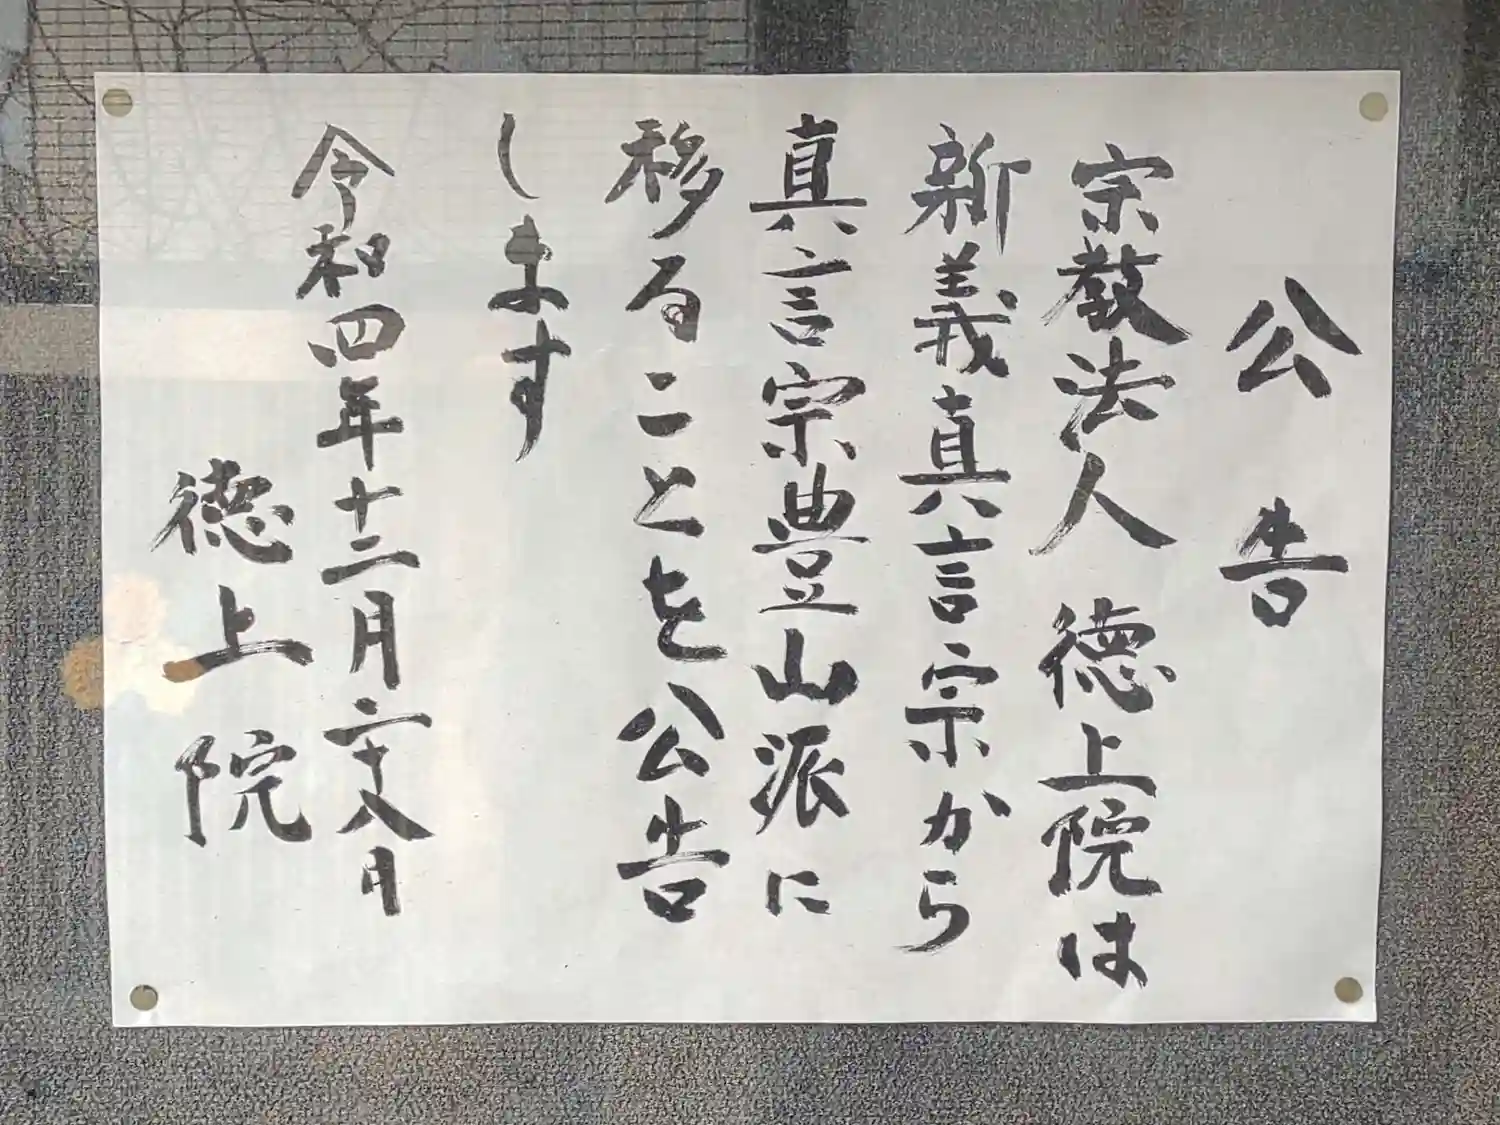 公告
宗教法人 徳上院は
新義真言宗から
真言宗豊山派に
移ることを公告
します
令和四年十二月二十八日
徳上院